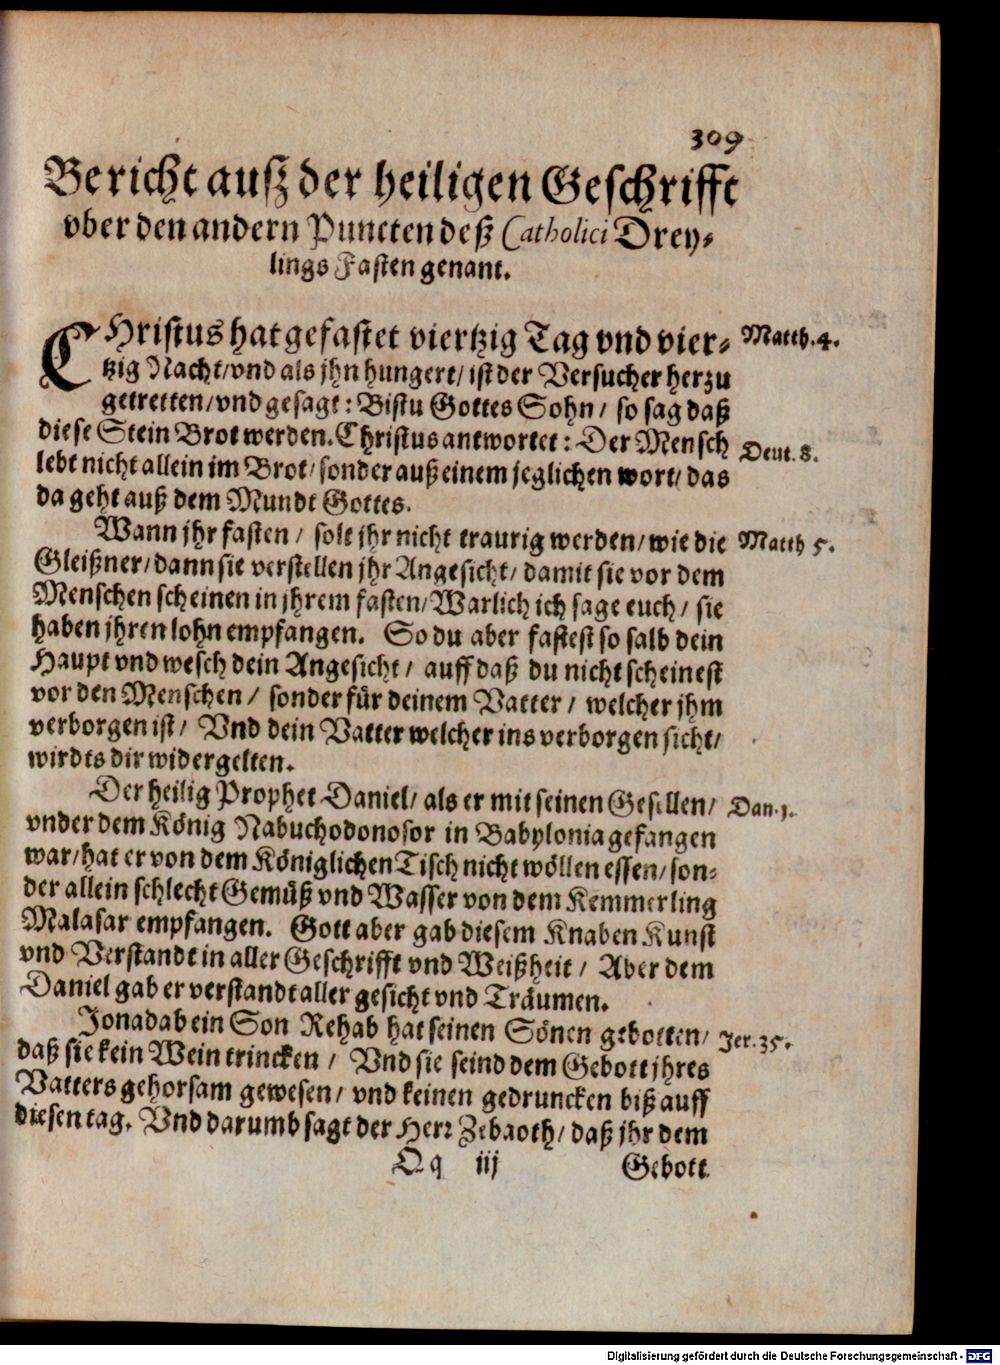 309
Bericht auß der heiligen Geschrifft
vber den andern Puncten deß Catholici Drey-
lings Fasten genant.
CHristus hat gefastet viertzig Tag vnd vier- Matth. 4.
tzig Nacht/ vnd als jhn hungert/ ist der Versucher herzu
getretten/ vnd gesagt: Bistu Gottes Sohn/ so sag daß
diese Stein Brot werden. Christus antwortet: Der Mensch Deut. 8.
lebt nicht allein im Brot/ sonder auß einem jeglichen wort/ das
da geht auß dem Mundt Gottes.
Wann jhr fasten/ solt jhr nicht traurig werden/ wie die Matth 5.
Gleißner/ dann sie verstellen jhr Angesicht/ damit sie vor dem
Menschen scheinen in jhrem fasten/ Warlich ich sage euch/ sie
haben jhren lohn empfangen. So du aber fastest so salb dein
Haupt vnd wesch dein Angesicht/ auff daß du nicht scheinest
vor den Menschen/ sonder für deinem Vatter/ welcher jhm
verborgen ist/ Vnd dein Vatter welcher ins verborgen sicht/
wirdts dir widergelten.
Der heilig Prophet Daniel/ als er mit seinen Gesellen/ Dan. 1.
vnder dem König Nabuchodonosor in Babylonia gefangen
war/ hat er von dem Königlichen Tisch nicht wöllen essen/ son-
der allein schlecht Gemüß vnd Wasser von dem Kemmerling
Malasar empfangen. Gott aber gab diesem Knaben Kunst
vnd Verstandt in aller Geschrifft vnd Weißheit/ Aber dem
Daniel gab er verstandt aller gesicht vnd Träumen.
Jonadab ein Son Rehab hat seinen Sönen gebotten/ Jer. 35.
daß sie kein Wein trincken/ Vnd sie seind dem Gebott jhres
Vatters gehorsam gewesen/ vnd keinen gedruncken biß auff
diesen tag. Vnd darumb sagt der Herr Zebaoth/ daß jhr dem
Qq iij Gebott
Digitalisierung gefördert durch die Deutsche Forschungsgemeinschaft - DFG